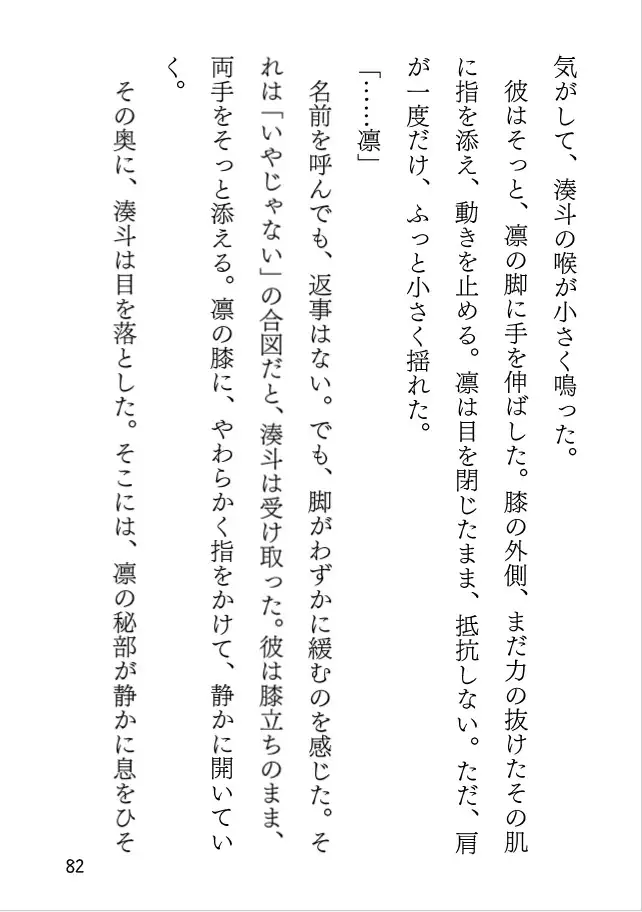 気がして、湊斗の喉が小さく鳴った。
　彼はそっと、凛の脚に手を伸ばした。膝の外側、まだ力の抜けたその肌
に指を添え、動きを止める。凛は目を閉じたまま、抵抗しない。ただ、肩
が一度だけ、ふっと小さく揺れた。
「……凛」
　名前を呼んでも、返事はない。でも、脚がわずかに緩むのを感じた。そ
れは「いやじゃない」の合図だと、湊斗は受け取った。彼は膝立ちのまま、
両手をそっと添える。凛の膝に、やわらかく指をかけて、静かに開いてい
く。
　その奥に、湊斗は目を落とした。そこには、凛の秘部が静かに息をひそ
82